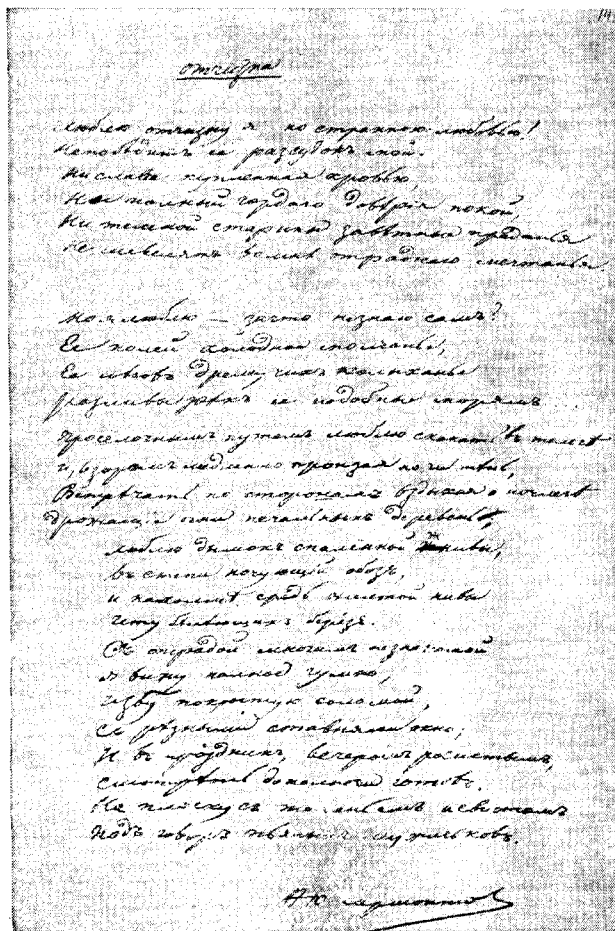 14.
отчизна
Люблю отчизну я но странною любовью!
Непобѣдитъ ее разсудокъ мой.
Ни слава купленная кровью,
Ни полный гордаго довѣрія покой,
Ни темной старины завѣтныя преданья
Не шевелятъ во мнѣ отраднаго мечтанья.
Но я люблю — за что не знаю самъ?
Ея полей холодное молчанье,
Ея лѣсовъ дремучихъ колыханье
разливы рѣкъ ея подобные морямъ
проселочнымъ путемъ люблю скакать въ телегѣ
и, взоромъ медленно пронзая ночи тѣнь,
Встрѣчать по сторонамъ вздыхая о ночлегѣ
дрожащіе огни печальныхъ деревень;
люблю дымокъ спаленной жнивы,
въ степи ночующій обозъ,
и на холмѣ средь желтой нивы
чету бѣлѣющихъ березъ.
Съ отрадой многимъ незнакомой
я вижу полное гумно,
избу покрытую соломой,
Съ рѣзными ставнями окно;
И въ праздникъ, вечеромъ росистымъ,
Смотрѣть до полночи готовъ
На пляску съ топаньемъ и свистомъ
Подъ говоръ пьяныхъ мужичковъ.
М Лермонтов